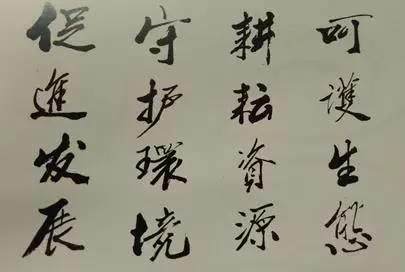 呵護生態
耕耘資源
守护環境
促進发展